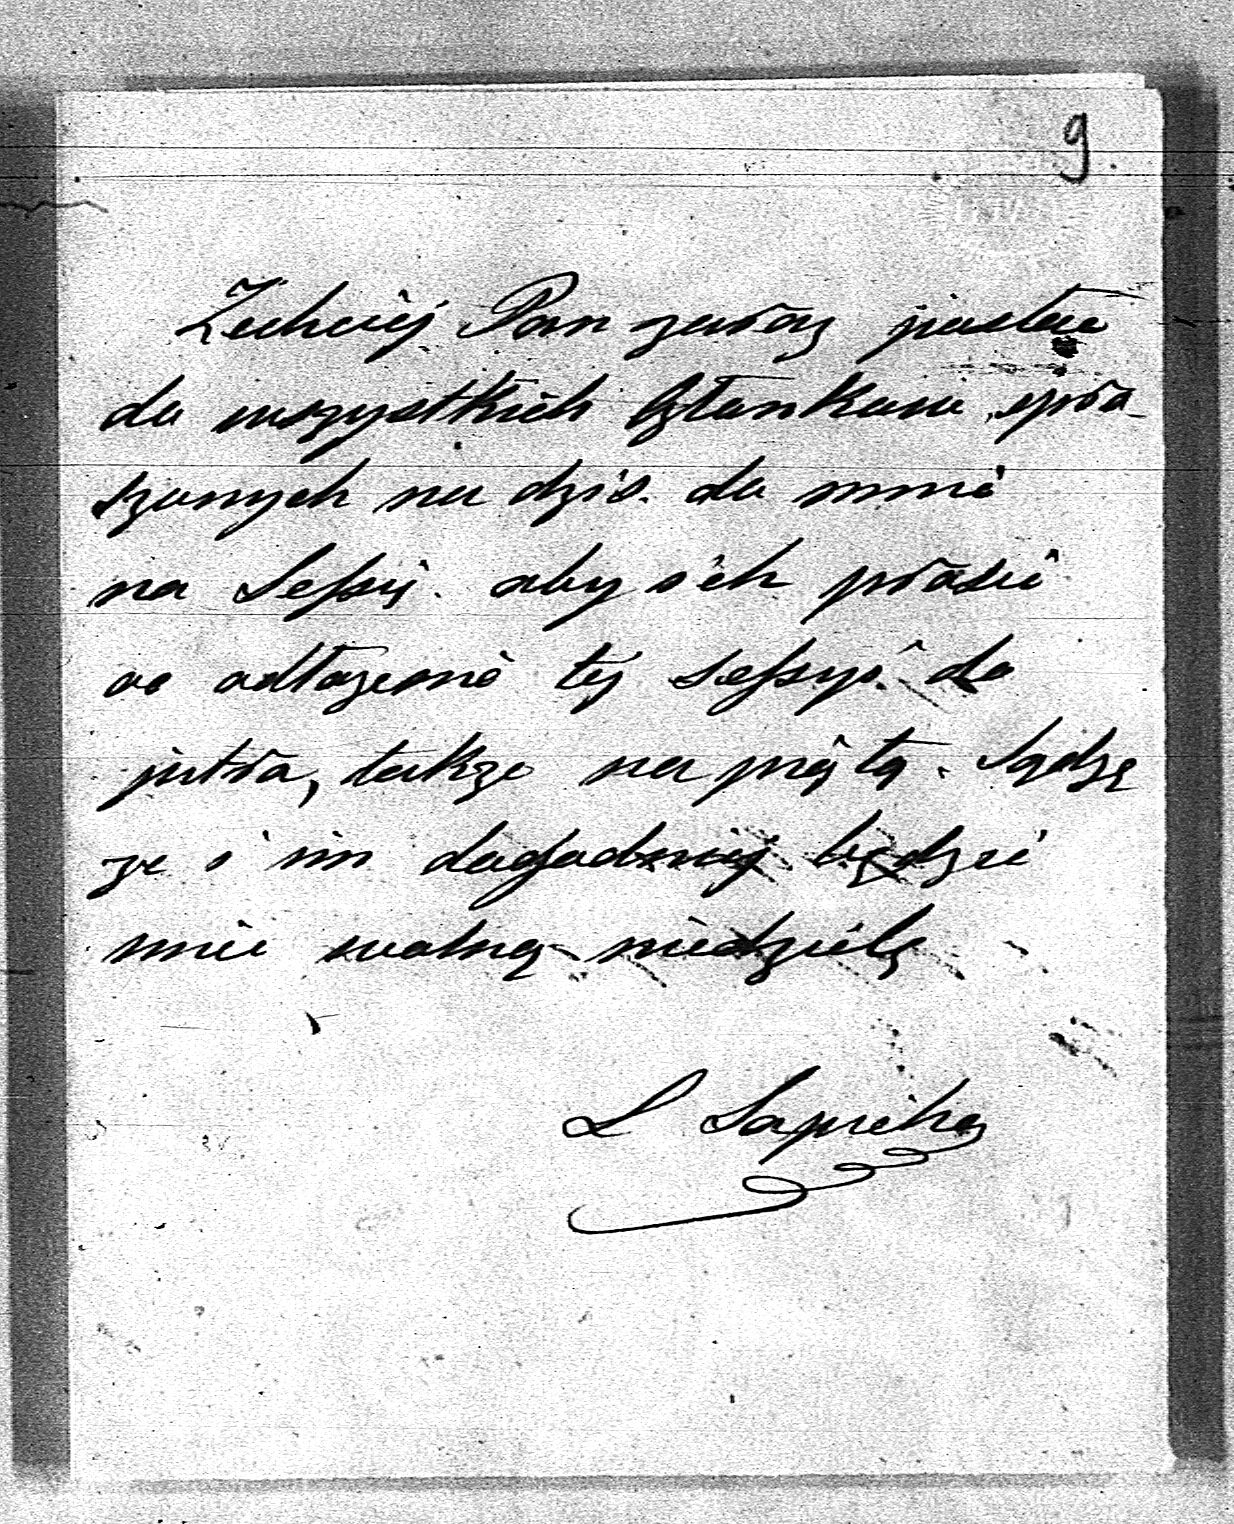 9
Zechciéj Pan zaraz posłać
do wszystkich Członków spro-
szonych na dziś do mnie
na Sessyę aby ich prosić
o odłożenie téj sessyi do
jutra, także na piątą. Sądzę
ze i im dogodniéj będzie
mieć wolną niedzielę
L Sapieha